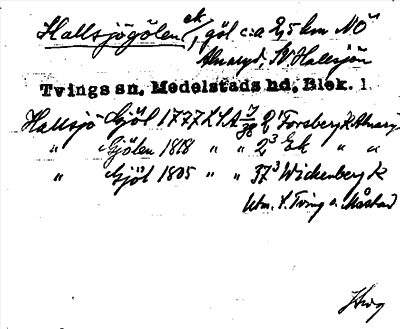 Hallsjögölen ek/, göl c:a 2,5 km NÖ
Alnaryd, N Hallsjön
Tvings sn. Medelstads hd. Blek. l.
Hallsjö Gjöl 1777 LSA 2¹ Forsberg k Alnary
" Gjölen 1818 " " 2³ Ek " "
" Gjöl 1805 " " 37³ Wickenberg k
Utm. t. Tving o. Måstad